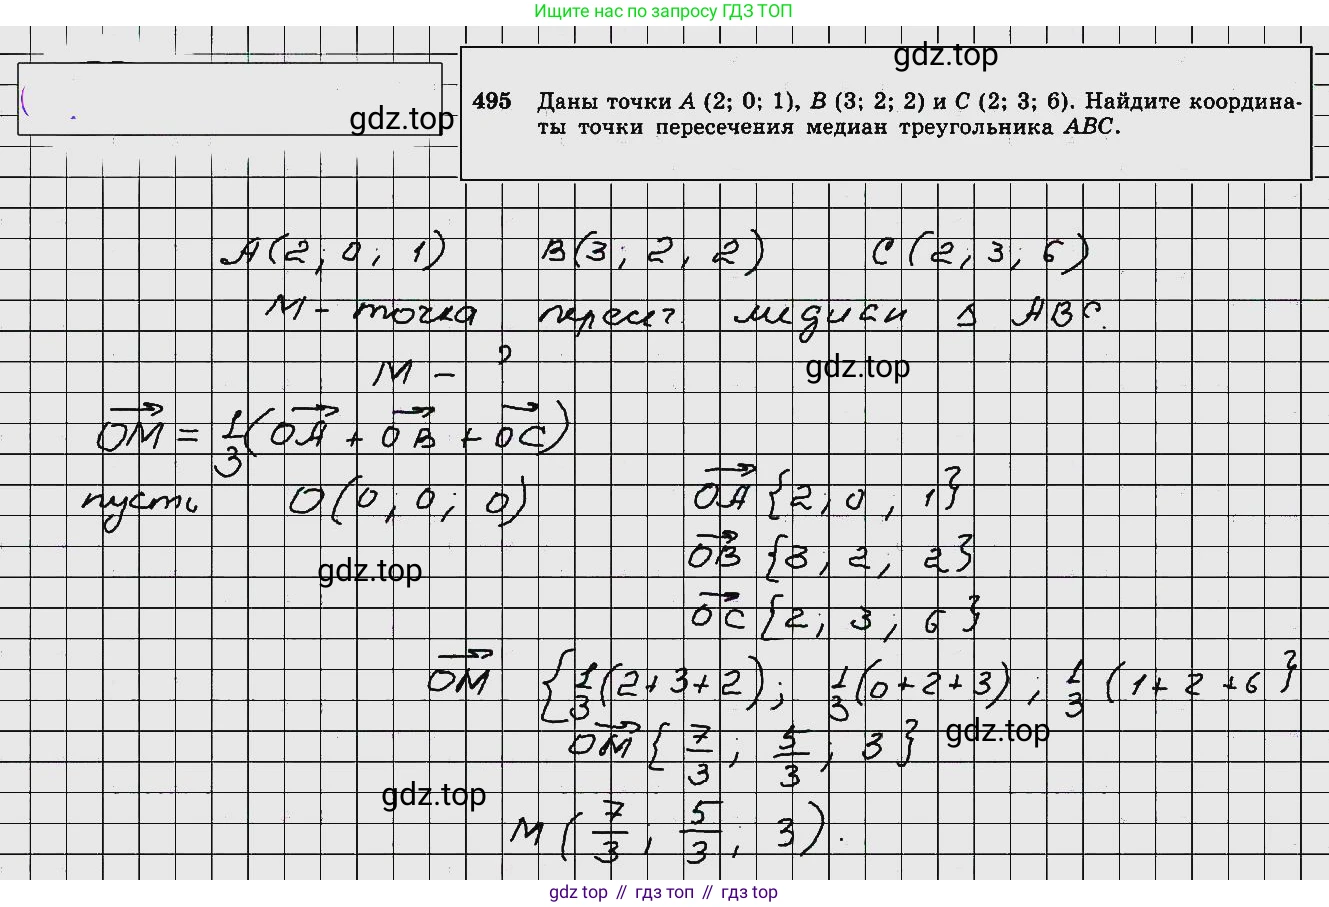 Ищите нас по запросу ГДЗ ТОП
gdz.top
gdz.top
495 Даны точки A (2; 0; 1), B (3; 2; 2) и C (2; 3; 6). Найдите координа-
ты точки пересечения медиан треугольника ABC.
A(2; 0; 1) B(3; 2; 2) C(2; 3; 6)
M - точка пересеч. медиан Δ ABC.
M - ?
gdz.top
OM = 1/3(OA + OB + OC)
пусть O(0; 0; 0) OA{2; 0; 1}
OB{3; 2; 2}
gdz.top
OC{2; 3; 6}
OM {1/3(2+3+2); 1/3(0+2+3); 1/3(1+2+6}
OM{7/3; 5/3; 3}
gdz.top
gdz.top
M(7/3; 5/3; 3).
gdz top // гдз топ // gdz top